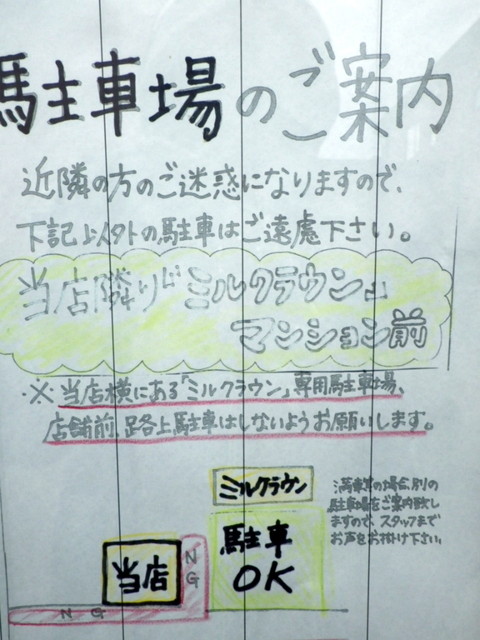 駐車場のご案内
近隣の方のご迷惑になりますので、
下記以外の駐車はご遠慮下さい。
当店隣り『ミルクラウン』
マンション前
※当店横にある「ミルクラウン」専用駐車場、
店舗前 路上駐車はしないようお願いします。
ミルクラウン
駐車
OK
満車等の場合、別の
駐車場をご案内致し
ますので、スタッフまで
お声をお掛け下さい。
当店
NG
NG